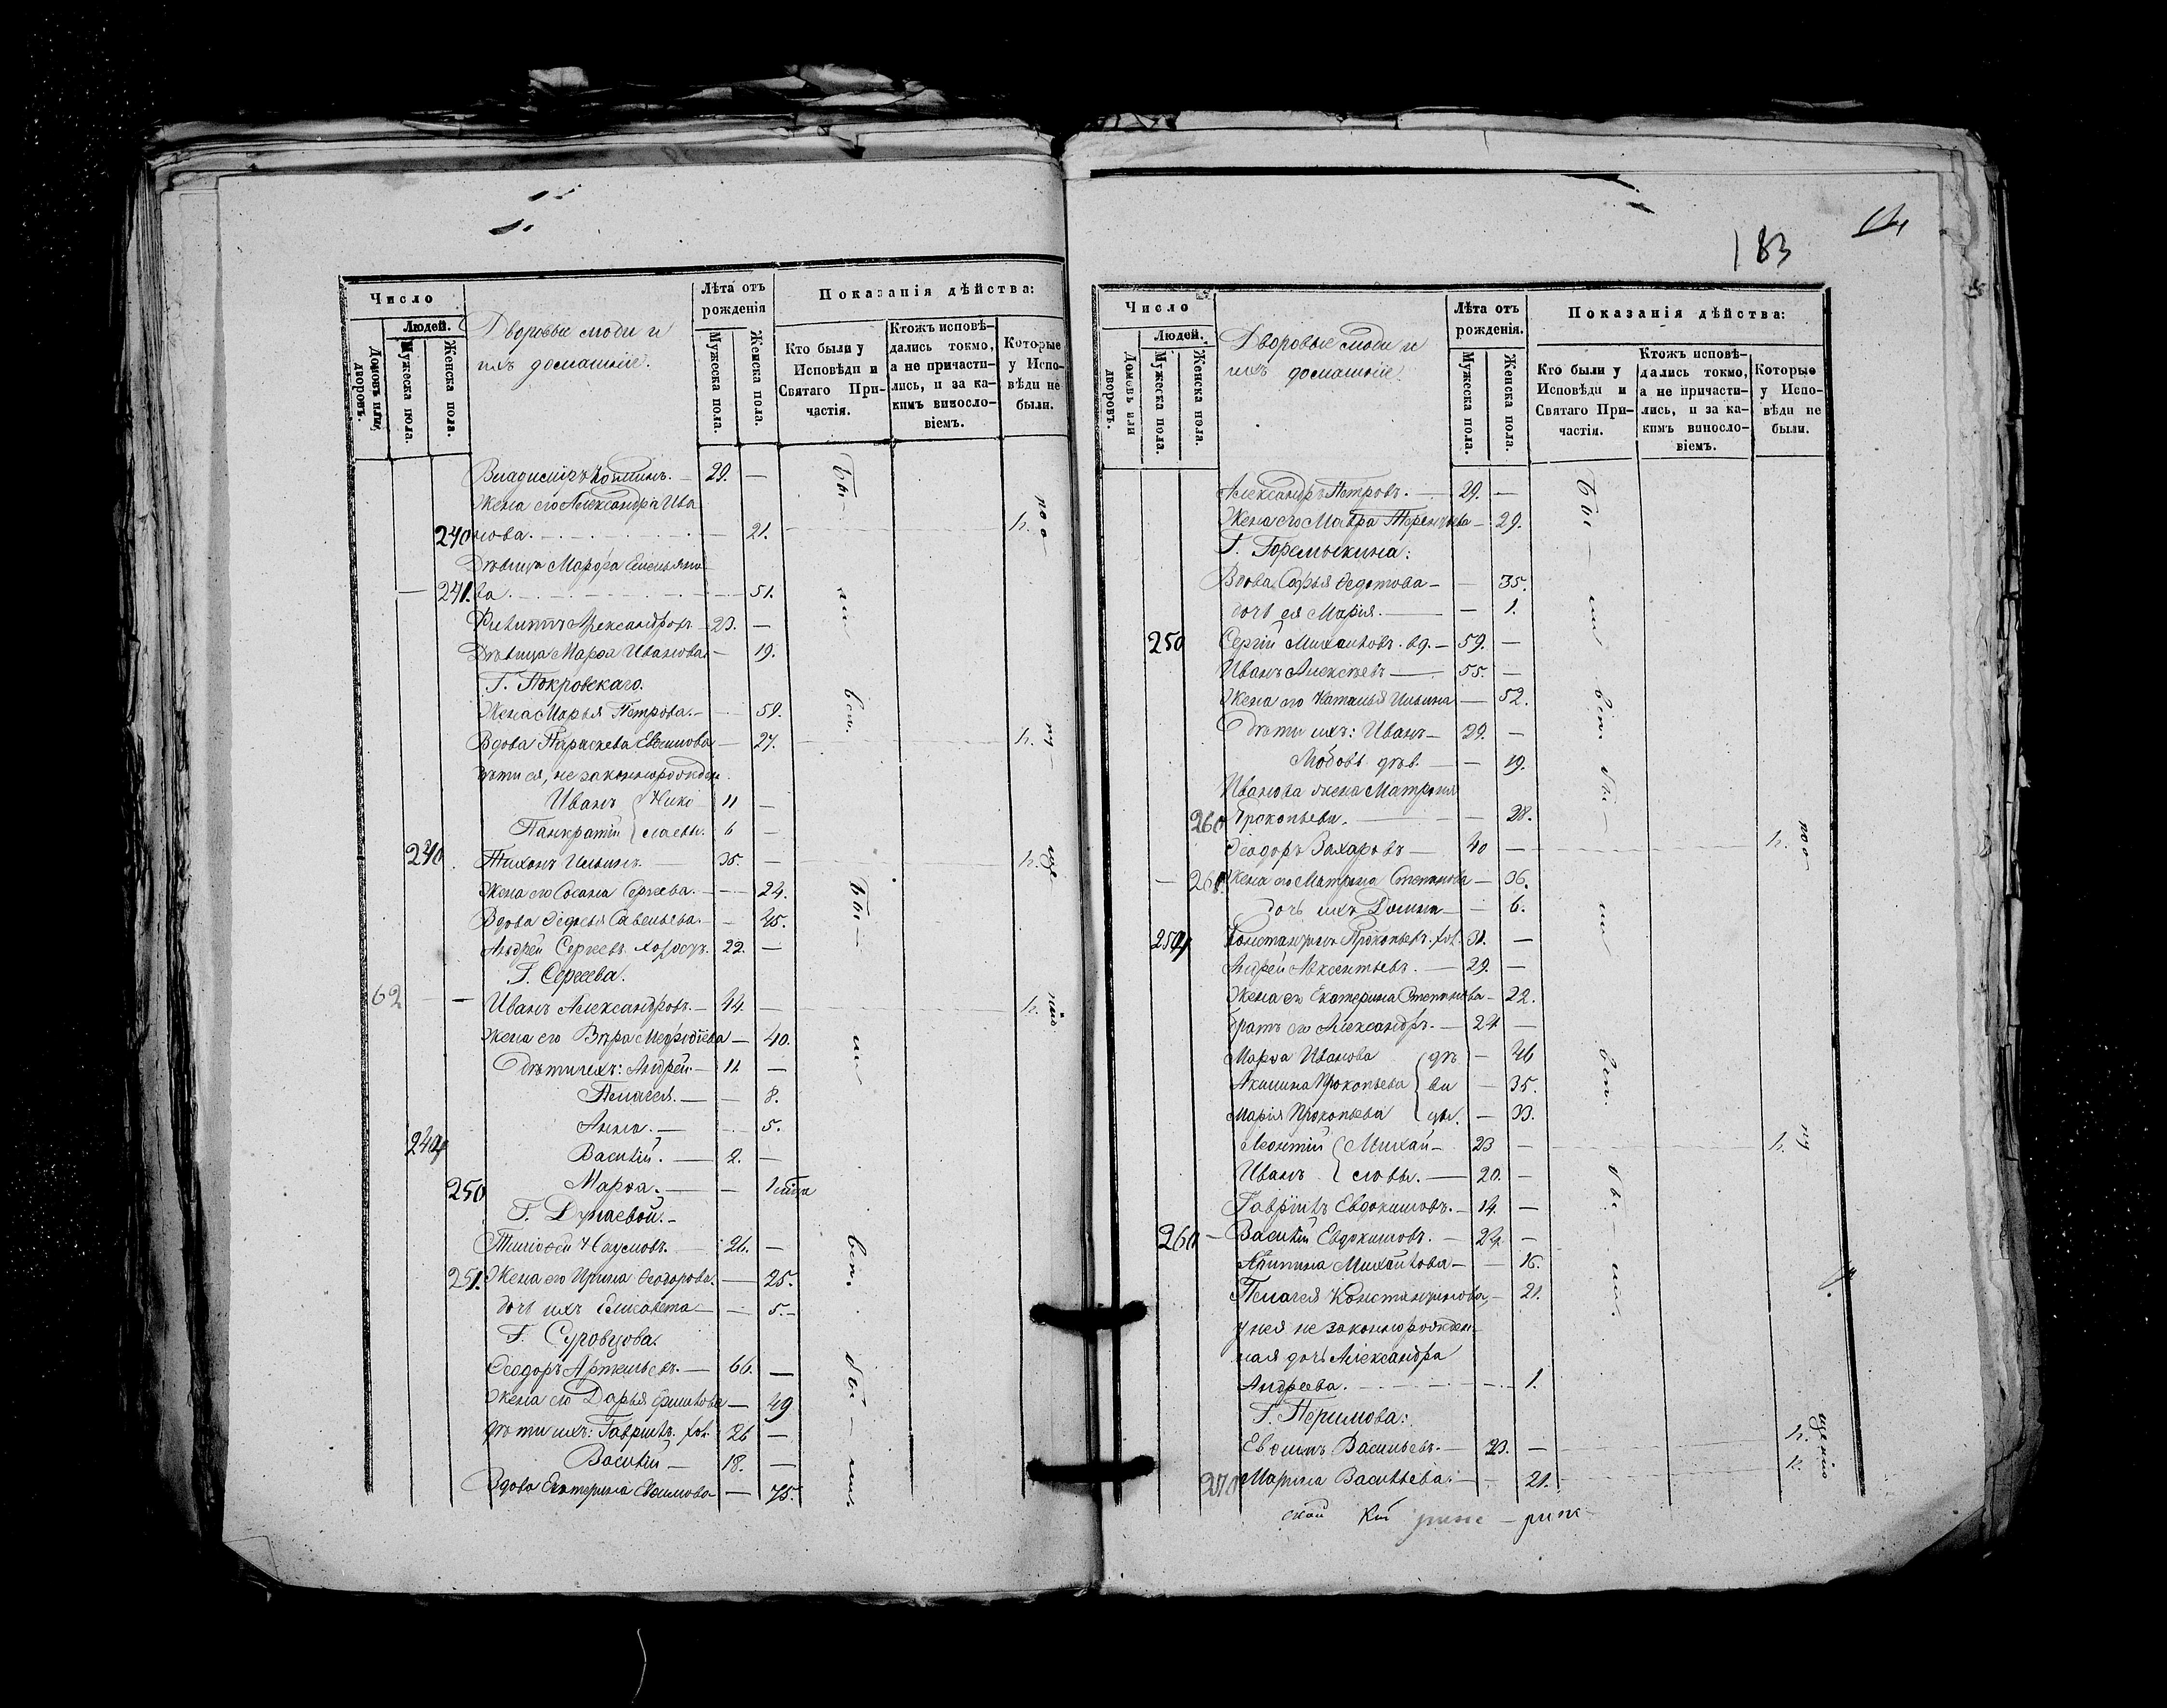 Число
Людей.
Домовъ или дворовъ.
Мужеска пола.
Женска пола.
Дворовые люди и
ихъ домашніе.
Лѣта отъ рожденія
Мужеска пола.
Женска пола.
Показанія дѣйства:
Кто были у Исповѣди и Святаго Причастія.
Ктожъ исповѣдались токмо, а не причастились, и за какимъ винословіемъ.
Которые у Исповѣди не были.
Владиміръ — 29. —
Жена его Александра Ива
240 нова. — 21. н.
Дѣвица Марфа Емельяно
— 241. ва. — 51.
Филиппъ Александровъ 23. —
Дѣвица Марѳа Иванова — 19.
Г. Покровскаго.
Жена Марья Петрова. — 59.
Вдова Параскева Евѳимова — 27. н.
дѣти ея, не законнорожден.
Иванъ { Нико 11 —
Панкратій { лаевы. 6 —
240. Тихонъ Ильинъ. — 35. — н.
Жена его Сосана Сергѣева. — 24.
Вдова Савельева. — 45.
Андрей Сергѣевъ холост. 22. —
Г. Сергѣева.
62 — — Иванъ Александровъ. — 44. — н.
Жена его Вѣра Мефодіева — 40.
Дѣти ихъ: Андрей. — 11. —
Пелагея. — — 8.
Анна. — — 5.
244 Василій. — 2. —
250 Марѳа. — — 1
Г. Дунаевой. —
Тимоѳей Наумовъ. — 26. —
251. Жена его Ирина Ѳеодорова. — 25.
дочь ихъ Елисавета — 5. —
Г. Суровцова.
Ѳеодоръ — 66. —
Жена его Дарья — 49
дѣти ихъ: Гавріилъ. хол. 26 —
Василій — 18. —
Вдова Екатерина Евѳимова — 75.
183
Число
Людей.
Домовъ или дворовъ.
Мужеска пола.
Женска пола.
Дворовые люди и
ихъ домашніе.
Лѣта отъ рожденія.
Мужеска пола.
Женска пола.
Показанія дѣйства:
Кто были у Исповѣди и Святаго Причастія.
Ктожъ исповѣдались токмо, а не причастились, и за какимъ винословіемъ.
Которые у Исповѣди не были.
Александръ Петровъ. — 29. —
Жена его Мавра Терентьева — 29.
Г. Горемыкина:
Вдова Софья Ѳедотова — — 35.
дочь ея Марія. — — 1.
250 Сергій Михаиловъ. вд. — 59. —
Иванъ Алексѣевъ — 55. —
Жена его Наталья Ильина — 52.
Дѣти ихъ: Иванъ — 29. —
Любовь дѣв. — — 19.
Иванова жена Матрона
260 Прокопьева. — — 28.
Ѳеодоръ Захаровъ — 40 — н.
— 261. Жена его Матрона Степанова — 36.
дочь ихъ Домна — — 6.
254 Константинъ Прокопьевъ. хол. 31. —
Андрей Авксентьевъ. — 29. —
Жена его Екатерина Степанова — 22.
братъ его Александръ. — 24 —
Марѳа Иванова { дѣ — 46
Акилина Прокопьева { ви — 35.
Марія Прокопьева { цы. — 33.
Леонтій { Михай — 23 — н.
Иванъ { ловы. — 20. —
Гавріилъ Евдокимовъ. — 14. —
260 — Василій Евдокимовъ. — 24. —
Михайлова — — 16.
Пелагея Константинова, — 21.
у нея не законнорожден
ная дочь Александра
Андреева. — 1.
Г. Перимова:
Евѳимъ Васильевъ. — 23. — н.
270 Марина Васильева. — — 21. н.